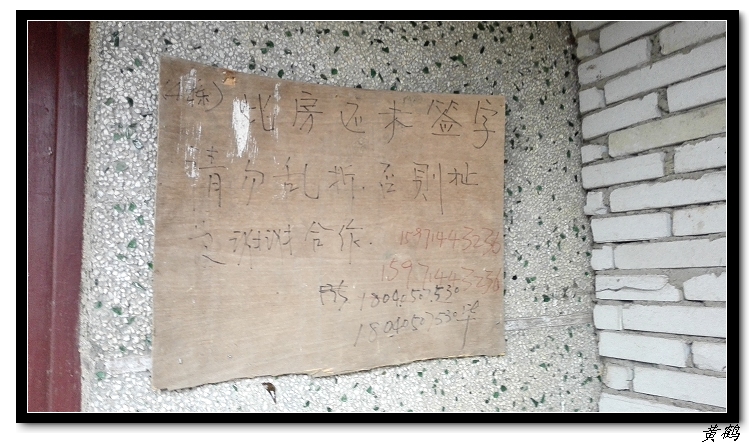 此房还未签字
请勿乱拆.否则
谢谢合作.
15971443236
15971443236
18040507530
18040507530
黄鹤